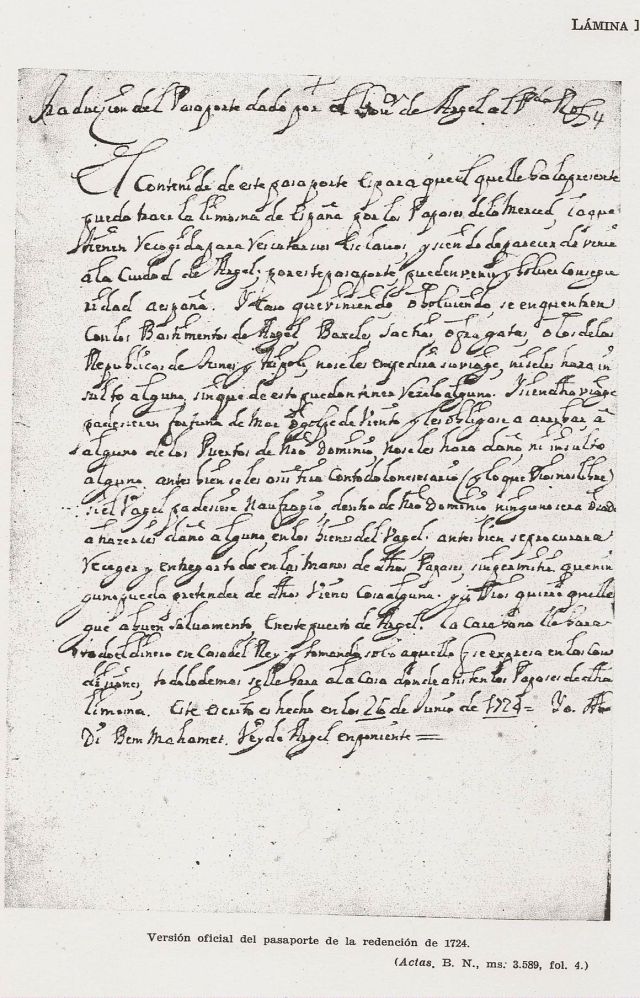 LÁMINA I
Traduczion del Pasaporte dado por el Govor de Argel al Pdo
4
El Contenido de este pasaporte es para que el que lleba la presente
puedo traer la limosna de España por los Papases de la Merced, la que
thienen Recogida para Rescatar sus Esclavos, y siendo de parecer de venir
a la Ciudad de Argel, por este pasaporte, pueden venir y bolver con segu
ridad a españa. Y Caso que viniendo, o bolviendo, se enquentren
Con los Bastimentos de Argel, Baxeles, Saetias, o fragatas, o los de las
Republicas de Tunes y Tripoli, no se les empedira su viage, ni se les hara in
sulto alguno, sin que de esto puedan tener Rezelo alguno. Y si en dho viage
padezieren fortuna de Mar, o golpe de Viento, y les obligase a arribar a
alguno de los Puertos de Nro Dominio, no se les hara daño, ni insulto
alguno, antes bien se les asistira Con todo lo nesesario, (y lo que Dios no libre)
si el Vagel padesiese Naufragio, dentro de Nro Dominio, ninguno sera
a hazerles daño alguno en los bienes del Vagel, antes bien se procurara
Recoger y entregar todo en las Manos de dhos Papases, sin permitir que nin
guno pueda pretender de dhos bienes Cosa alguna. y si Dios quiere que lle
gue a buen Salvamento, En este puerto de Argel. La
todo el dinero en Casa del Rey, y tomando solo aquello q se expresa en las Con
diziones, todo lo demas se llebara a la Casa donde asisten los Papases de dha
limosna. Este escrito es hecho en los 26 de Junio de 1724 = Yo
Di Bem Mahamet, Rey de Argel en poniente =
Versión oficial del pasaporte de la redención de 1724.
(Actas. B. N., ms. 3.589, fol. 4.)